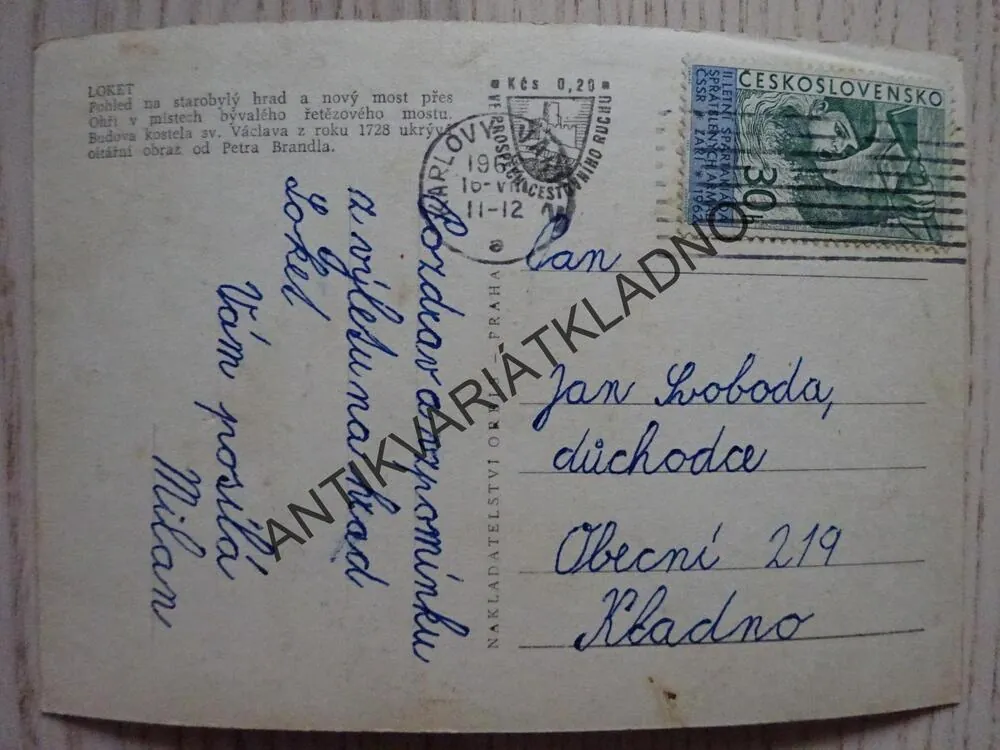 LOKET
Pohled na starobylý hrad a nový most přes
Ohři v místech bývalého řetězového mostu.
Budova kostela sv. Václava z roku 1728 ukrývá
oltářní obraz od Petra Brandla.
Pozdrav a vzpomínku
z výletu na hrad
Loket
Vám posílá
Milan
NAKLADATELSTVÍ ORBIS – PRAHA
Kčs 0,20
KARLOVY VARY
11-12
VE PROSPĚCH CESTOVNÍHO RUCHU
ČESKOSLOVENSKO
II. LETNÍ SPARTAKIÁDA
SPŘÁTELENÝCH ARMÁD
ČSSR * ZÁŘÍ * 1962
30h
Pan
Jan Svoboda,
důchodce
Obecní 219
Kladno
ANTIKVARIÁTKLADNO